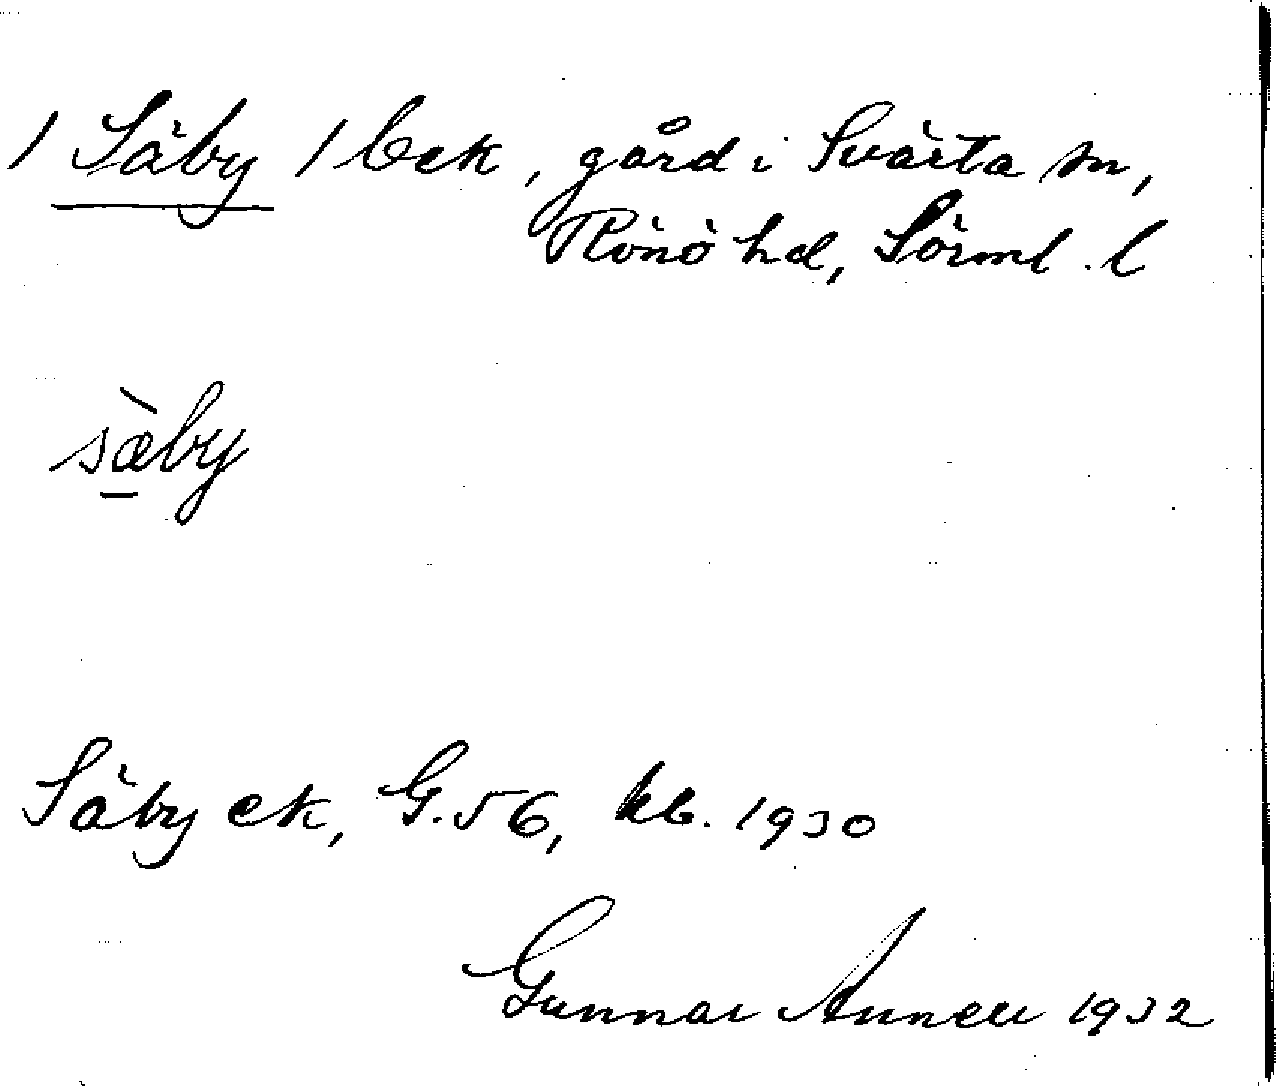 / Säby / bek, gård i Svärta sn,
Rönö hd, Sörml. l
sæ̀by
Säby ek, G. 56, kb. 1930
Gunnar Annell 1932